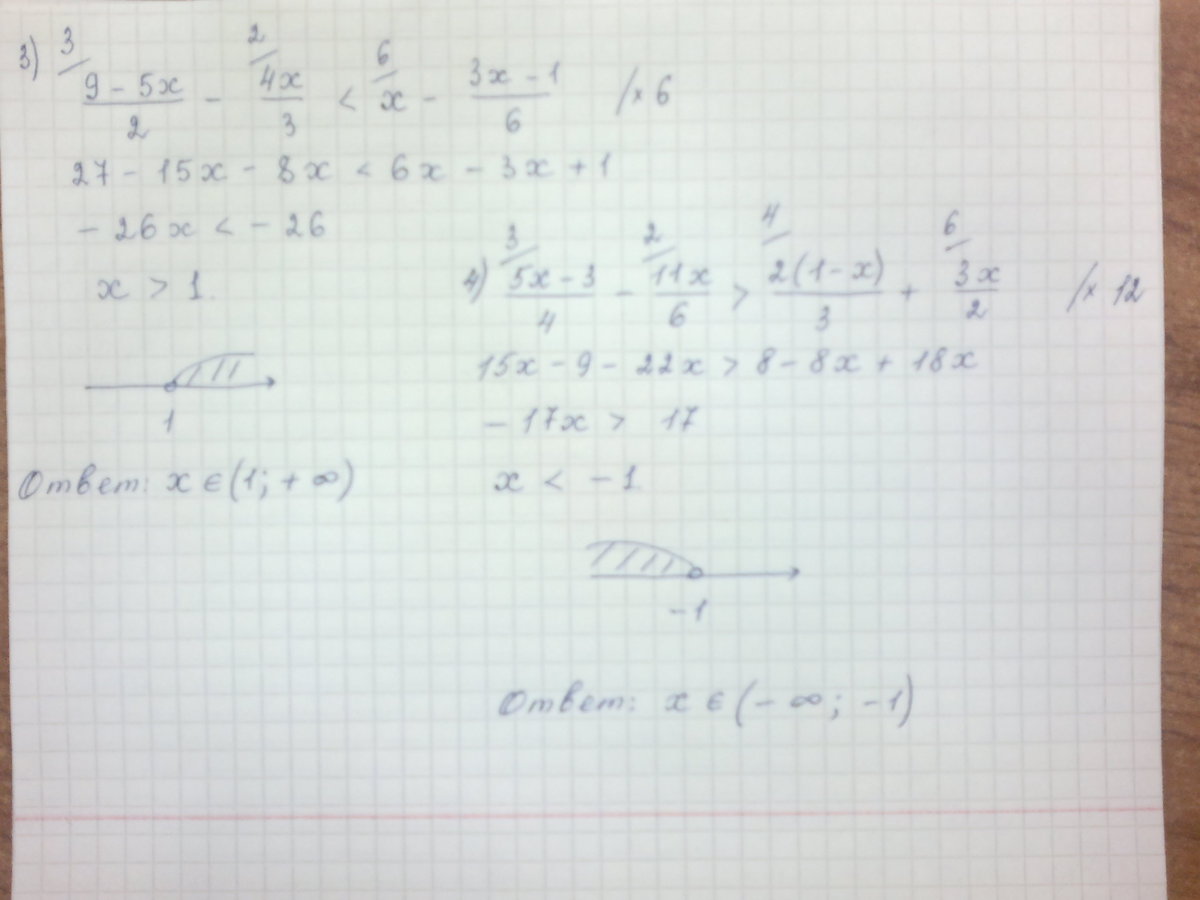 3) 3/ (9 - 5x)/2 - 2/ 4x/3 < 6/ x - (3x - 1)/6 /× 6
27 - 15x - 8x < 6x - 3x + 1
- 26x < - 26
x > 1.
1
Ответ: x ∈ (1; + ∞)
4) 3/ (5x - 3)/4 - 2/ 11x/6 > 4/ 2(1 - x)/3 + 6/ 3x/2 /× 12
15x - 9 - 22x > 8 - 8x + 18x
- 17x > 17
x < - 1.
-1
Ответ: x ∈ (- ∞; -1)